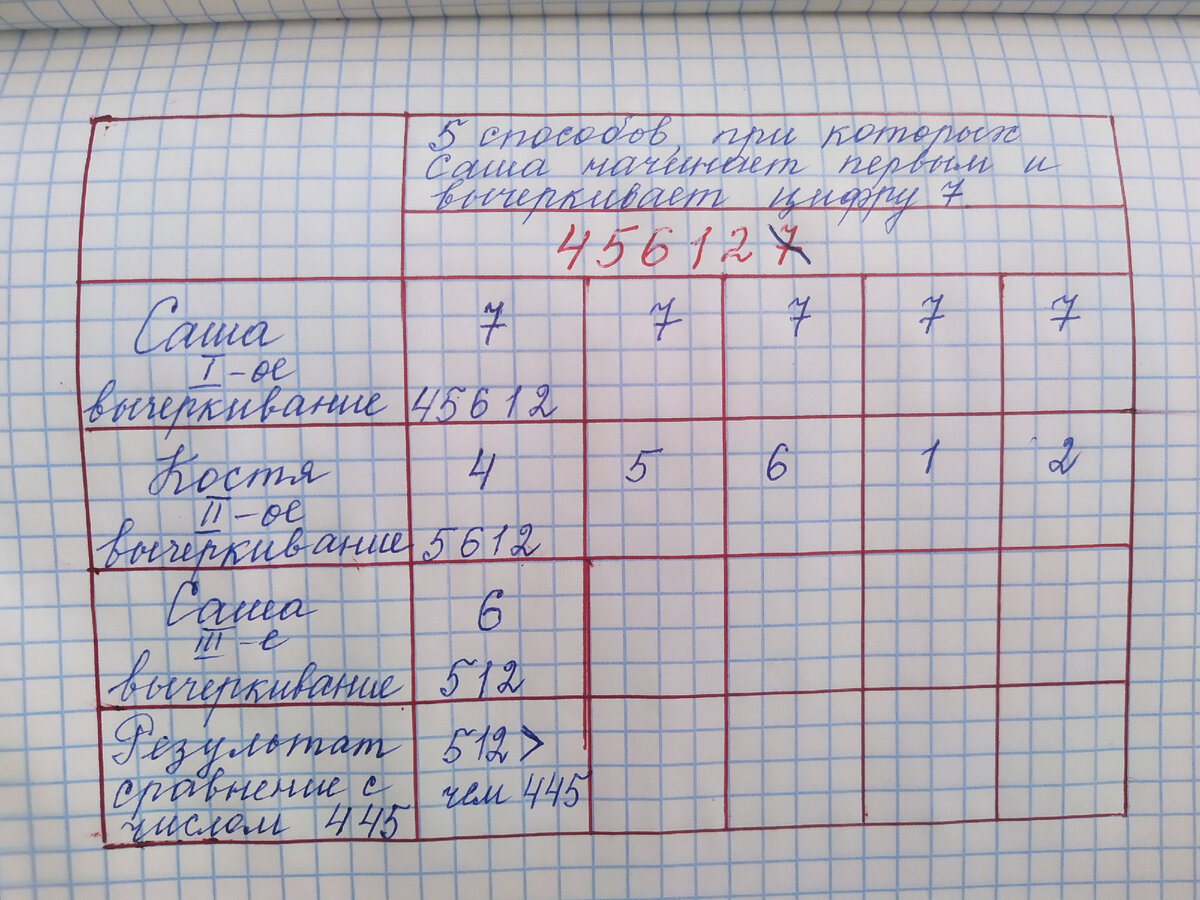 5 способов, при которых
Саша начинает первым и
вычеркивает цифру 7.
456127
Саша
I-ое
вычеркивание
7
45612
7
7
7
7
Костя
II-ое
вычеркивание
4
5612
5
6
1
2
Саша
III-е
вычеркивание
6
512
Результат
сравнение с
числом 445
512>
чем 445